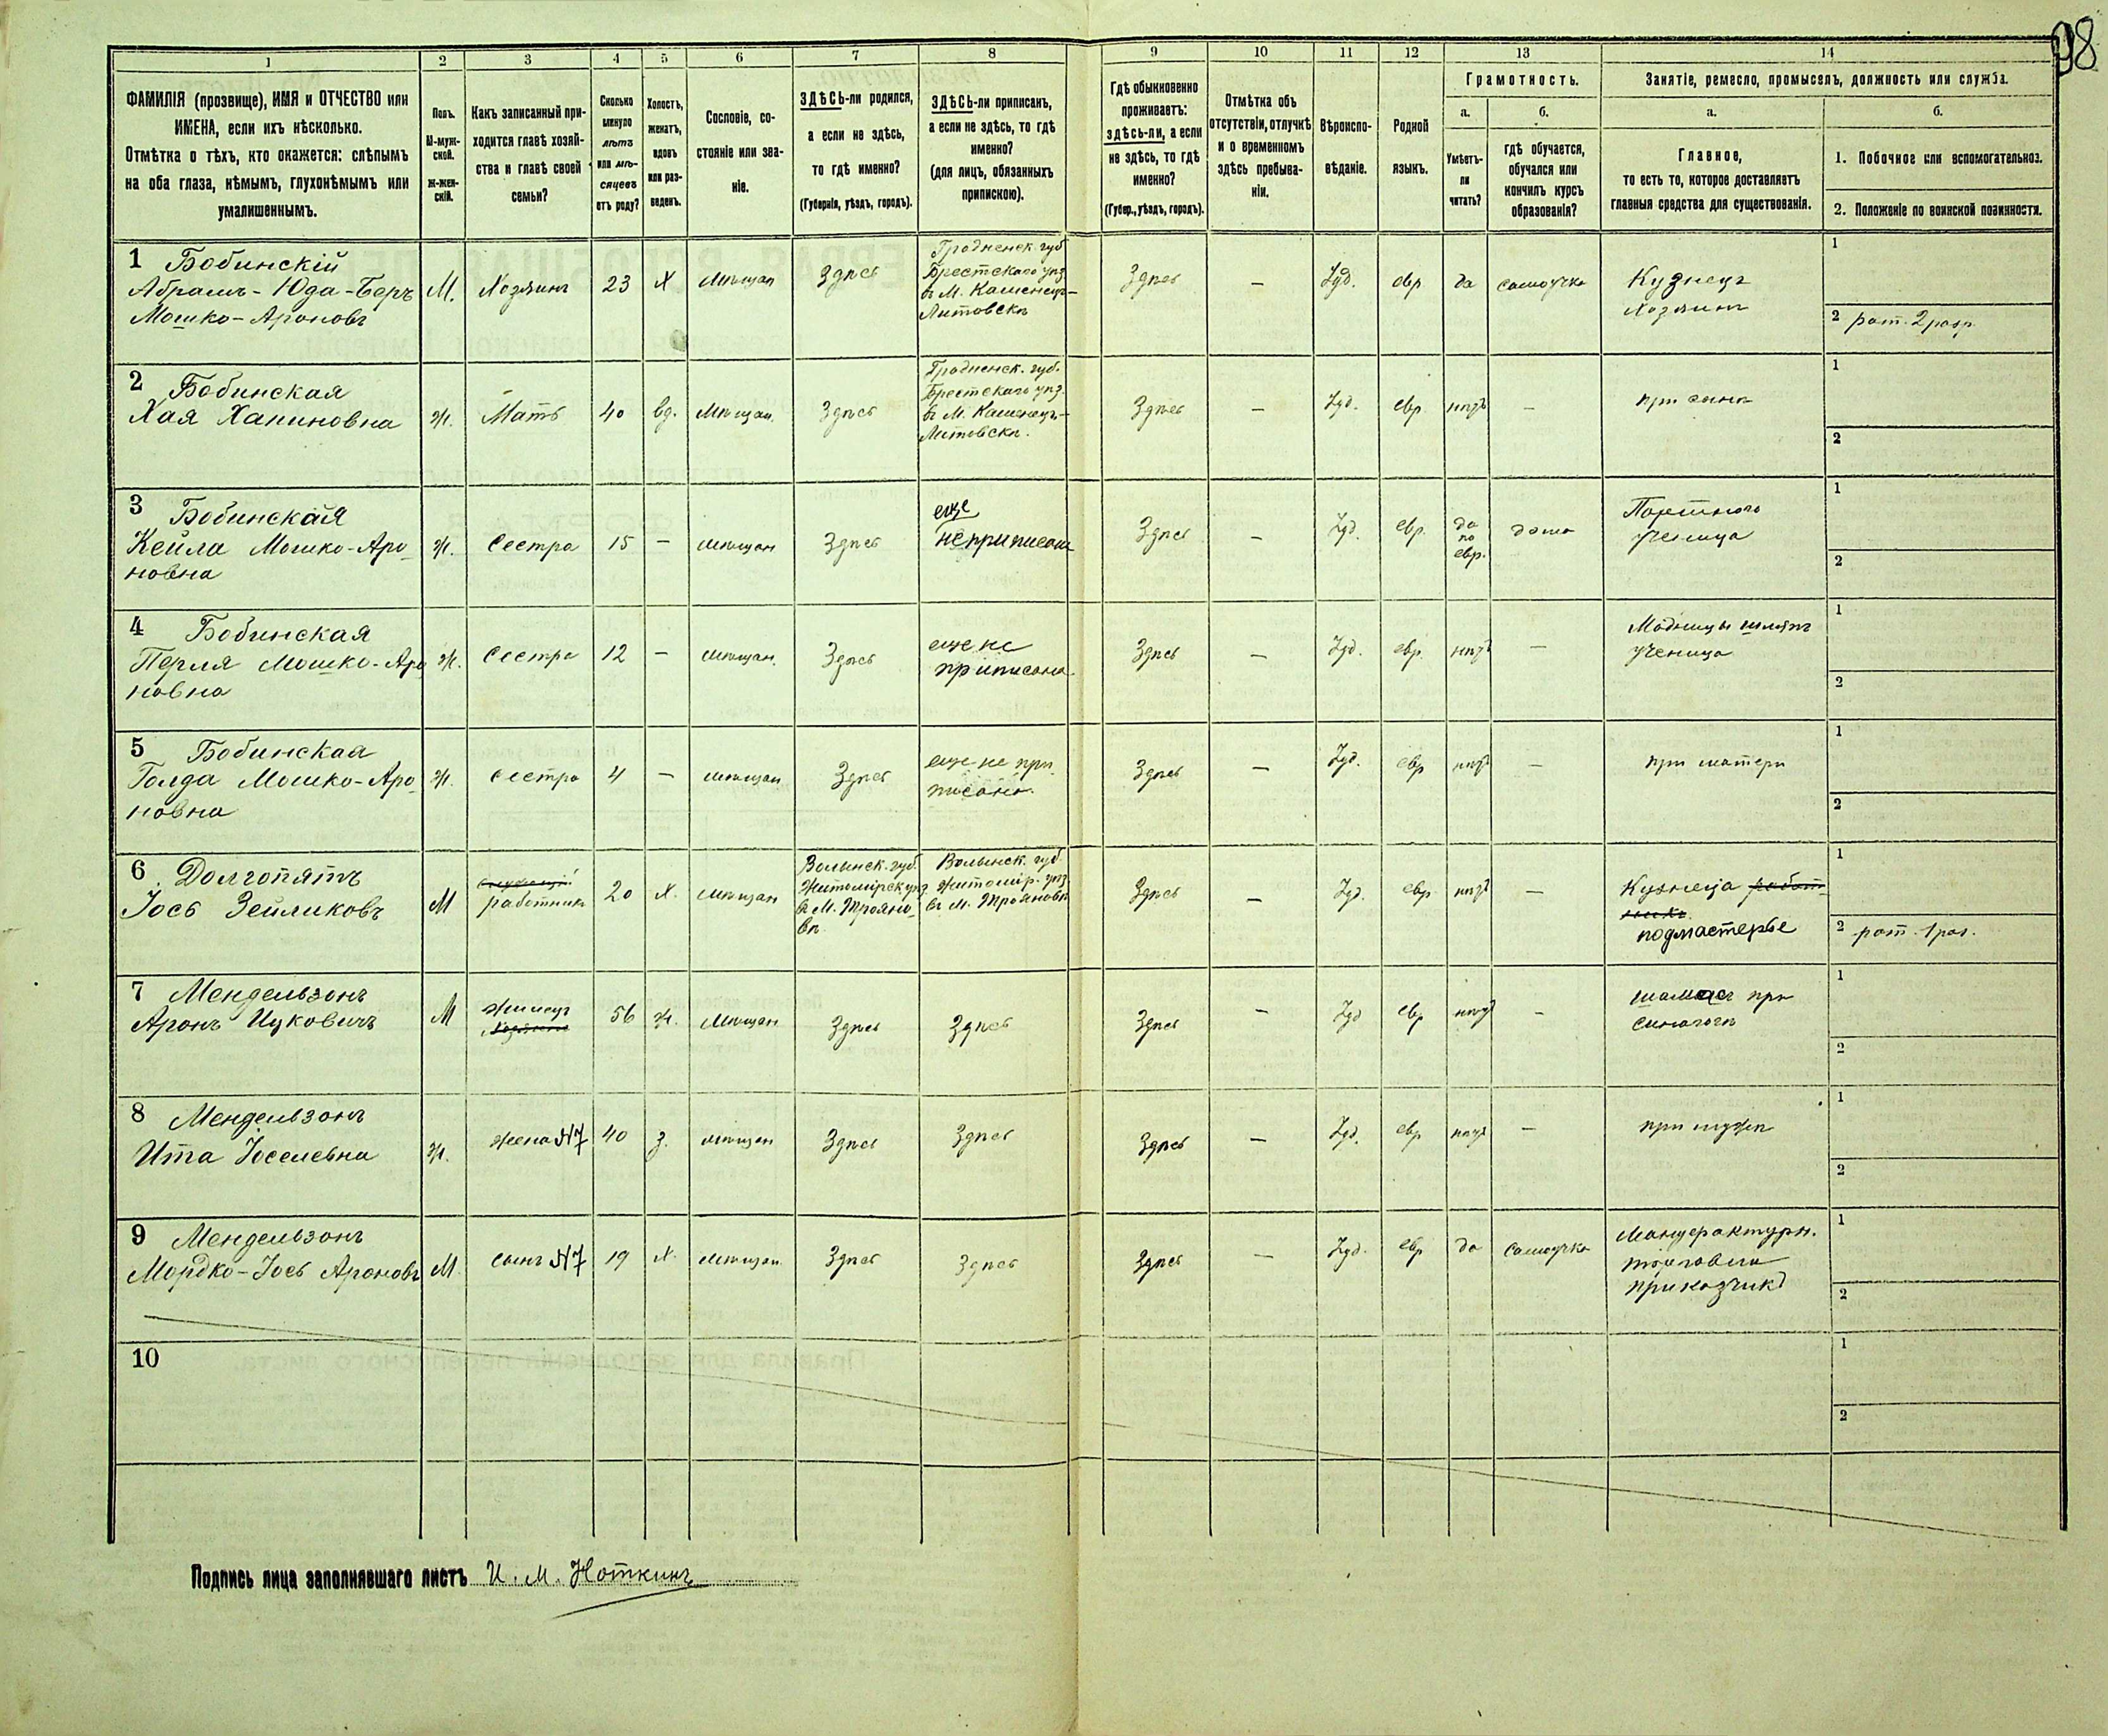 98
1 2 3 4 5 6 7 8 9 10 11 12 13 14
ФАМИЛІЯ (прозвище), ИМЯ и ОТЧЕСТВО или
ИМЕНА, если ихъ нѣсколько.
Отмѣтка о тѣхъ, кто окажется: слѣпымъ
на оба глаза, нѣмымъ, глухонѣмымъ или
умалишеннымъ.
Полъ.
М-муж-
ской.
Ж-жен-
скій.
Какъ записанный при-
ходится главѣ хозяй-
ства и главѣ своей
семьи?
Сколько
минуло
лѣтъ
или мѣ-
сяцевъ
отъ роду?
Холостъ,
женатъ,
вдовъ
или раз-
веденъ.
Сословіе, со-
стояніе или зва-
ніе.
ЗДѢСЬ-ли родился,
а если не здѣсь,
то гдѣ именно?
(Губернія, уѣздъ, городъ).
ЗДѢСЬ-ли приписанъ,
а если не здѣсь, то гдѣ
именно?
(для лицъ, обязанныхъ
припискою).
Гдѣ обыкновенно
проживаетъ:
здѣсь-ли, а если
не здѣсь, то гдѣ
именно?
(Губер., уѣздъ, городъ).
Отмѣтка объ
отсутствіи, отлучкѣ
и о временномъ
здѣсь пребыва-
ніи.
Вѣроиспо-
вѣданіе.
Родной
языкъ.
Грамотность.
а.
Умѣетъ-
ли
читать?
б.
гдѣ обучается,
обучался или
кончилъ курсъ
образованія?
Занятіе, ремесло, промыселъ, должность или служба.
а.
Главное,
то есть то, которое доставляетъ
главныя средства для существованія.
б.
1. Побочное или вспомогательное.
2. Положеніе по воинской повинности.
1 Бобинскій
Абрамъ-Юда-Беръ
Мошко-Ароновъ
М.
Хозяинъ
23
Х
мѣщан
Здѣсь
Гродненск. губ
Брестскаго уѣз
въ М. Каменецъ-
Литовскѣ
Здѣсь
—
Іуд.
евр
да
самоучка
Кузнецъ
Хозяинъ
1
2 рат. 2 разр.
2 Бобинская
Хая Хапиновна
Ж.
Мать
40
вд.
Мѣщан.
Здѣсь
Гродненск. губ.
Брестскаго уѣз.
въ М. Каменецъ-
Литовскѣ.
Здѣсь
—
Іуд.
евр
нѣтъ
—
при сынѣ
1
2
3 Бобинская
Кейла Мошко-Аро-
новна
Ж.
Сестра
15
—
мѣщан
Здѣсь
еще
неприписана
Здѣсь
—
Іуд.
евр.
да
по
евр.
дома
Портного
ученица
1
2
4 Бобинская
Перля Мошко-Аро
новна
Ж.
Сестра
12
—
мѣщан.
Здѣсь
еще не
приписана
Здѣсь
—
Іуд.
евр.
нѣтъ
—
Модницы шляпъ
ученица
1
2
5 Бобинская
Голда Мошко-Аро-
новна
Ж.
сестра
4
—
мѣщан
Здѣсь
еще не при
писана.
Здѣсь
—
Іуд.
евр
нѣтъ
—
при матери
1
2
6 Долгопятъ
Іось Зейликовъ
М
работникъ
20
Х.
мѣщан
Волынск. губ.
Житомірск уѣз
въ М. Трояно-
вѣ
Волынск. губ
Житомір. уѣз
въ М. Трояновѣ
Здѣсь
—
Іуд.
евр
нѣтъ
—
Кузнеца
подмастерье
1
2 рат. 1 раз.
7 Мендельзонъ
Аронъ Ицковичъ
М
Жилецъ
Хозяинъ
56
Ж.
Мѣщан
Здѣсь
Здѣсь
Здѣсь
—
Іуд
евр
нѣтъ
—
шамесъ при
синагогѣ
1
2
8 Мендельзонъ
Ита Іоселевна
Ж.
жена N7
40
З.
мѣщан
Здѣсь
Здѣсь
Здѣсь
—
Іуд.
евр
нѣтъ
—
при мужѣ
1
2
9 Мендельзонъ
Мордко-Іось Ароновъ
М
сынъ N7
19
Х.
мѣщан.
Здѣсь
Здѣсь
Здѣсь
—
Іуд.
евр
да
самоучка
Мануфактурн.
торговли
приказчикъ
1
2
10
1
2
Подпись лица заполнявшаго листъ И. М. Ноткинъ